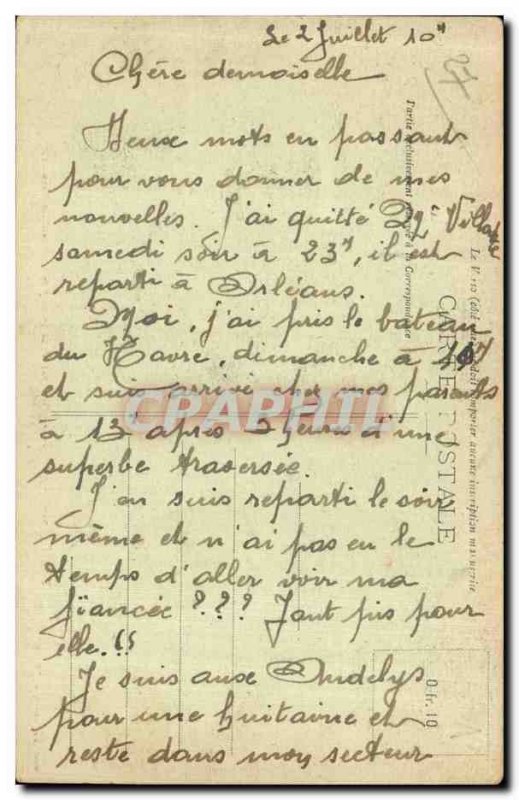 Le 2 Juillet 10H
27
Chère demoiselle
Deux mots en passant
pour vous donner de mes
nouvelles. J'ai quitté Villa
samedi soir à 23H, il est
reparti à Orléans.
Moi, j'ai pris le bateau
du Havre, dimanche à
et suis arrivé chez mes parents
à 13 après heures d'une
superbe traversée.
J'en suis reparti le soir
même et n'ai pas eu le
temps d'aller voir ma
fiancée ??? Tant pis pour
elle.!!
Je suis aux Andelys
pour une huitaine et
reste dans mon secteur
CARTE POSTALE
Partie exclusivement réservée à la Correspondance
importer aucune inscription manuscrite
0 fr. 10
CPAPHIL